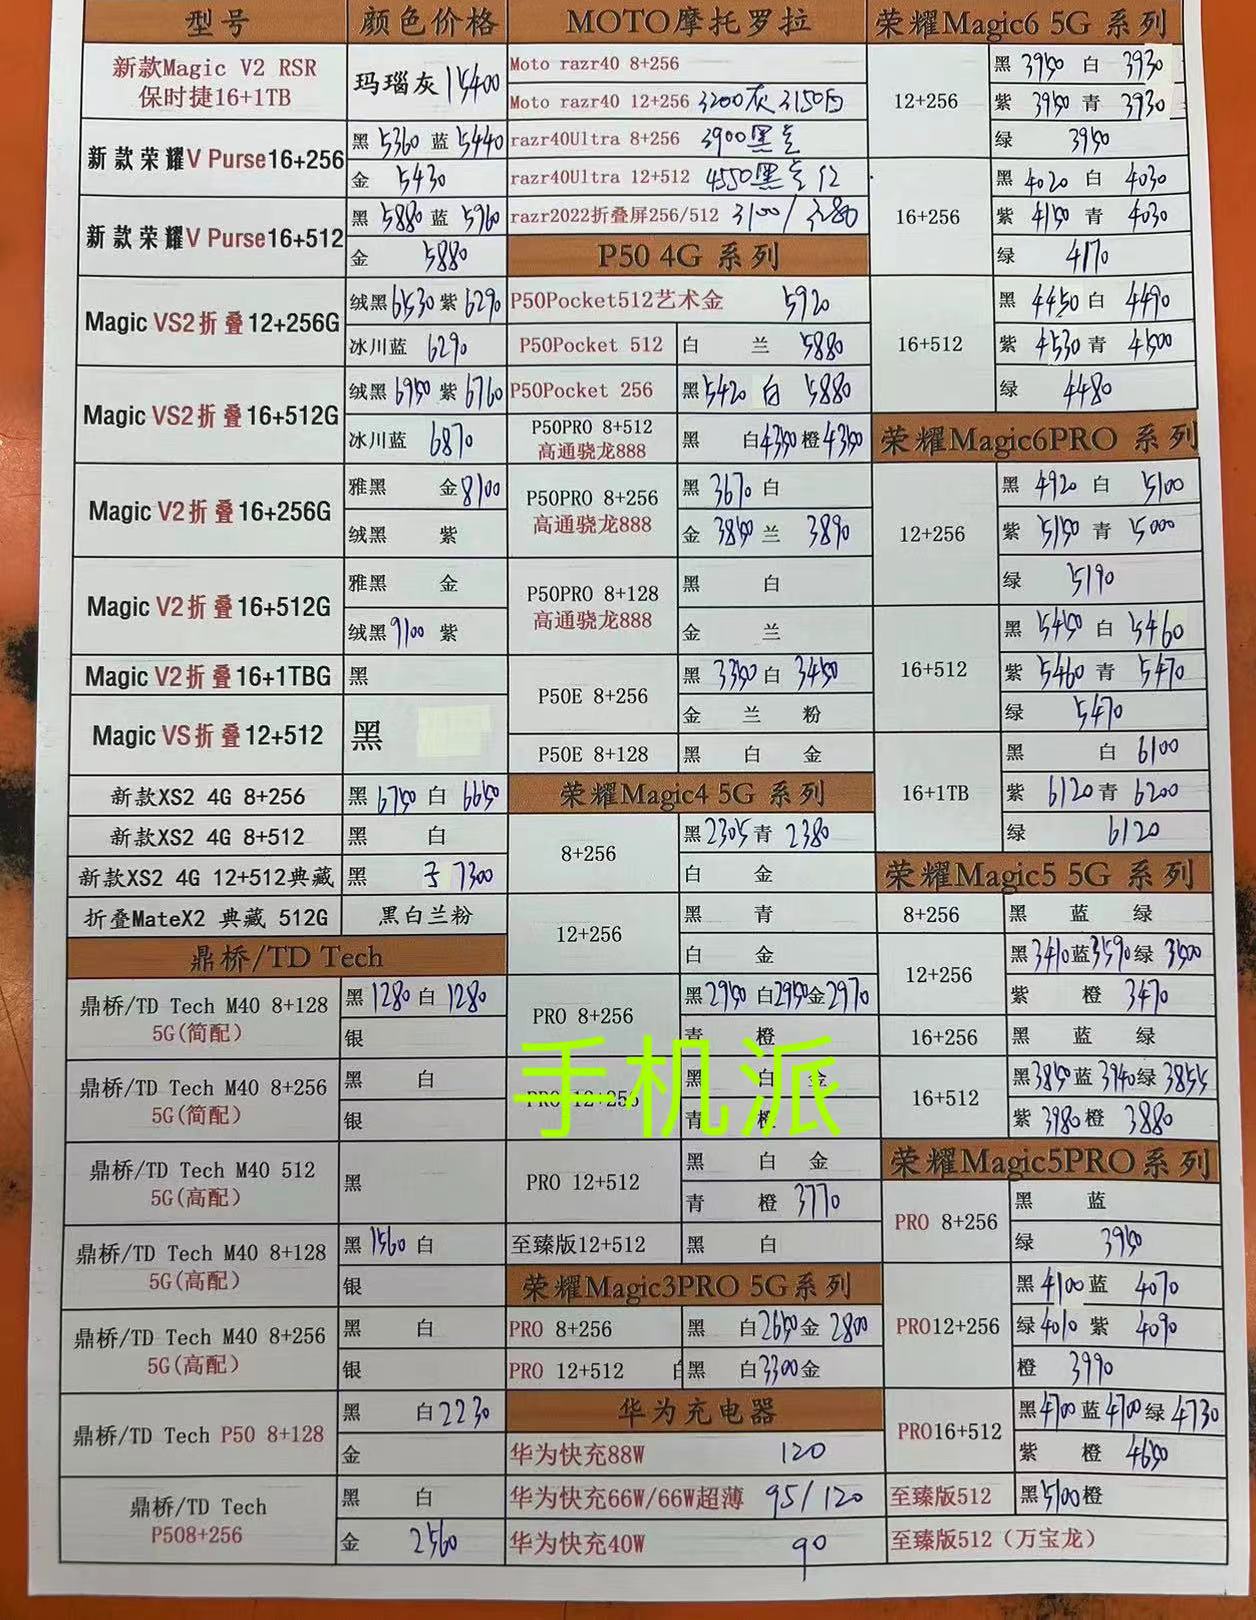 型号 颜色价格
新款Magic V2 RSR
保时捷16+1TB
玛瑙灰 15400
新款荣耀V Purse16+256
黑 5360 蓝 5440
金 5430
新款荣耀V Purse16+512
黑 5880 蓝 5960
金 5880
Magic VS2折叠12+256G
绒黑6530 紫 6290
冰川蓝 6290
Magic VS2折叠16+512G
绒黑 6950 紫 6760
冰川蓝 6870
Magic V2折叠16+256G
雅黑 金8100
绒黑 紫
Magic V2折叠16+512G
雅黑 金
绒黑9100 紫
Magic V2折叠16+1TBG 黑
Magic VS折叠12+512 黑
新款XS2 4G 8+256 黑 6750 白 6650
新款XS2 4G 8+512 黑 白
新款XS2 4G 12+512典藏 黑 7300
折叠MateX2 典藏 512G 黑白兰粉
鼎桥/TD Tech
鼎桥/TD Tech M40 8+128
5G(简配)
黑1280 白 1280
银
鼎桥/TD Tech M40 8+256
5G(简配)
黑 白
银
鼎桥/TD Tech M40 512
5G(高配)
黑
鼎桥/TD Tech M40 8+128
5G(高配)
黑 1560 白
银
鼎桥/TD Tech M40 8+256
5G(高配)
黑 白
银
鼎桥/TD Tech P50 8+128
黑 白2230
金
鼎桥/TD Tech
P508+256
黑 白
金 2560
MOTO摩托罗拉
Moto razr40 8+256
Moto razr40 12+256 3200灰 3150白
razr40Ultra 8+256 3900黑
razr40Ultra 12+512 4550黑 红
razr2022折叠屏256/512 3100/3280
P50 4G 系列
P50Pocket512艺术金 5920
P50Pocket 512 白 兰 5880
P50Pocket 256 黑5420 白 5880
P50PRO 8+512
高通骁龙888
黑 白4350橙4350
P50PRO 8+256
高通骁龙888
黑 3670 白
金 3850 兰 3890
P50PRO 8+128
高通骁龙888
黑 白
金 兰
P50E 8+256
黑 3350 白 3450
金 兰 粉
P50E 8+128 黑 白 金
荣耀Magic4 5G 系列
8+256
黑2305青 2380
白 金
12+256
黑 青
白 金
PRO 8+256
黑2950 白2950金2970
青 橙
PRO 12+256
黑 白 金
青 橙
手机派
PRO 12+512
黑 白 金
青 橙 3770
至臻版12+512 黑 白
荣耀Magic3PRO 5G系列
PRO 8+256 黑 白2650金 2800
PRO 12+512 黑 白3300金
华为充电器
华为快充88W 120
华为快充66W/66W超薄 95/120
华为快充40W 90
荣耀Magic6 5G 系列
12+256
黑 3950 白 3930
紫 3950 青 3930
绿 3950
16+256
黑 4020 白 4030
紫 4150 青 4030
绿 4170
16+512
黑 4450 白 4490
紫 4530 青 4500
绿 4480
荣耀Magic6PRO 系列
12+256
黑 4920 白 5100
紫 5150 青 5000
绿 5190
16+512
黑 5450 白 5460
紫 5460 青 5470
绿 5470
16+1TB
黑 白 6100
紫 6120青 6200
绿 6120
荣耀Magic5 5G 系列
8+256 黑 蓝 绿
12+256
黑3410蓝3590绿 3500
紫 橙 3470
16+256 黑 蓝 绿
16+512
黑3850蓝 3940绿 3855
紫 3980橙 3880
荣耀Magic5PRO系列
PRO 8+256
黑 蓝
绿 3950
PRO12+256
黑 4100蓝 4070
绿4010 紫 4090
橙 3990
PRO16+512
黑4700蓝4700绿4730
紫 橙 4650
至臻版512 黑5100橙
至臻版512（万宝龙）